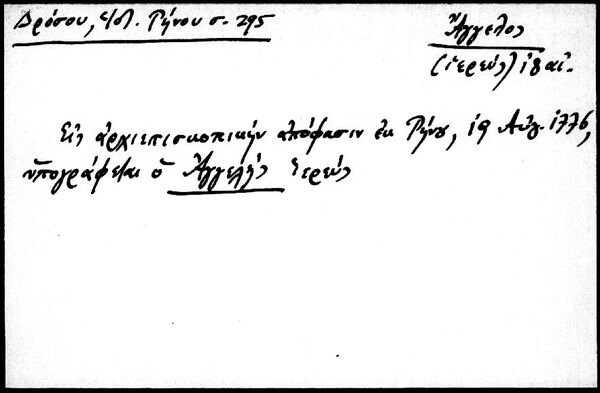 Δρόσου, ἐκλ. Ρήνου σ. 295
Ἄγγελος
(ἱερεύς) ιη αἰ.
Εἰς ἀρχιεπισκοπικὴν ἀπόφασιν ἐκ Ρήνου, 19 Αὐγ. 1776,
ὑπογράφεται ὁ Ἀγγελῆς ἱερεύς